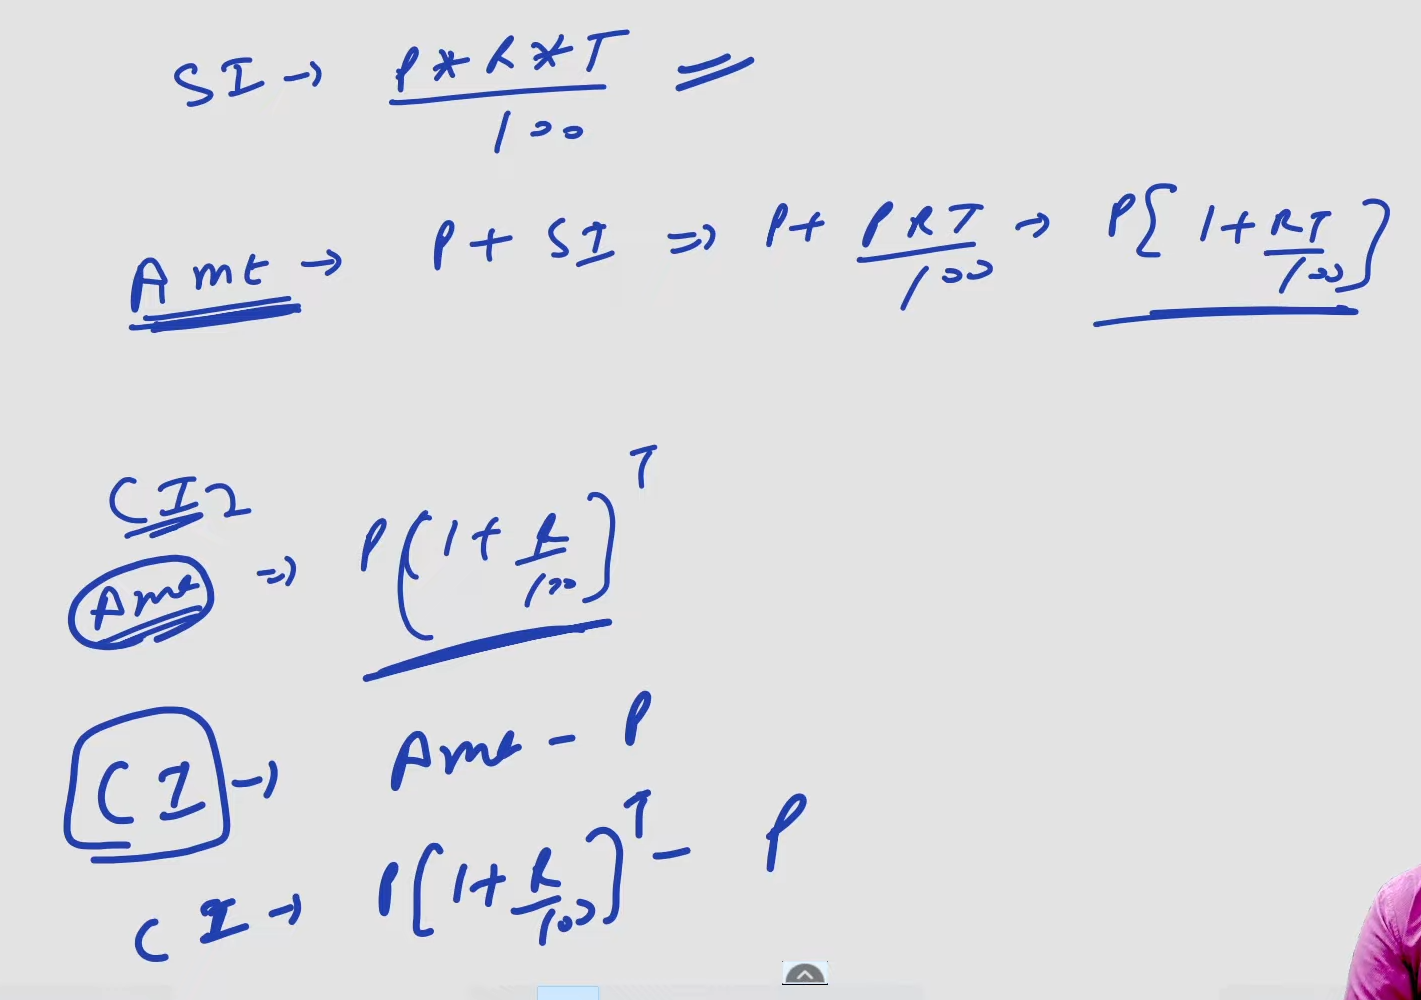 SI → P*R*T / 100 =
Amt → P + SI ⇒ P + PRT/100 → P[1 + RT/100]
CI⇒
Amt ⇒ P(1 + R/100)^T
CI → Amt - P
CI → P[1 + R/100]^T - P